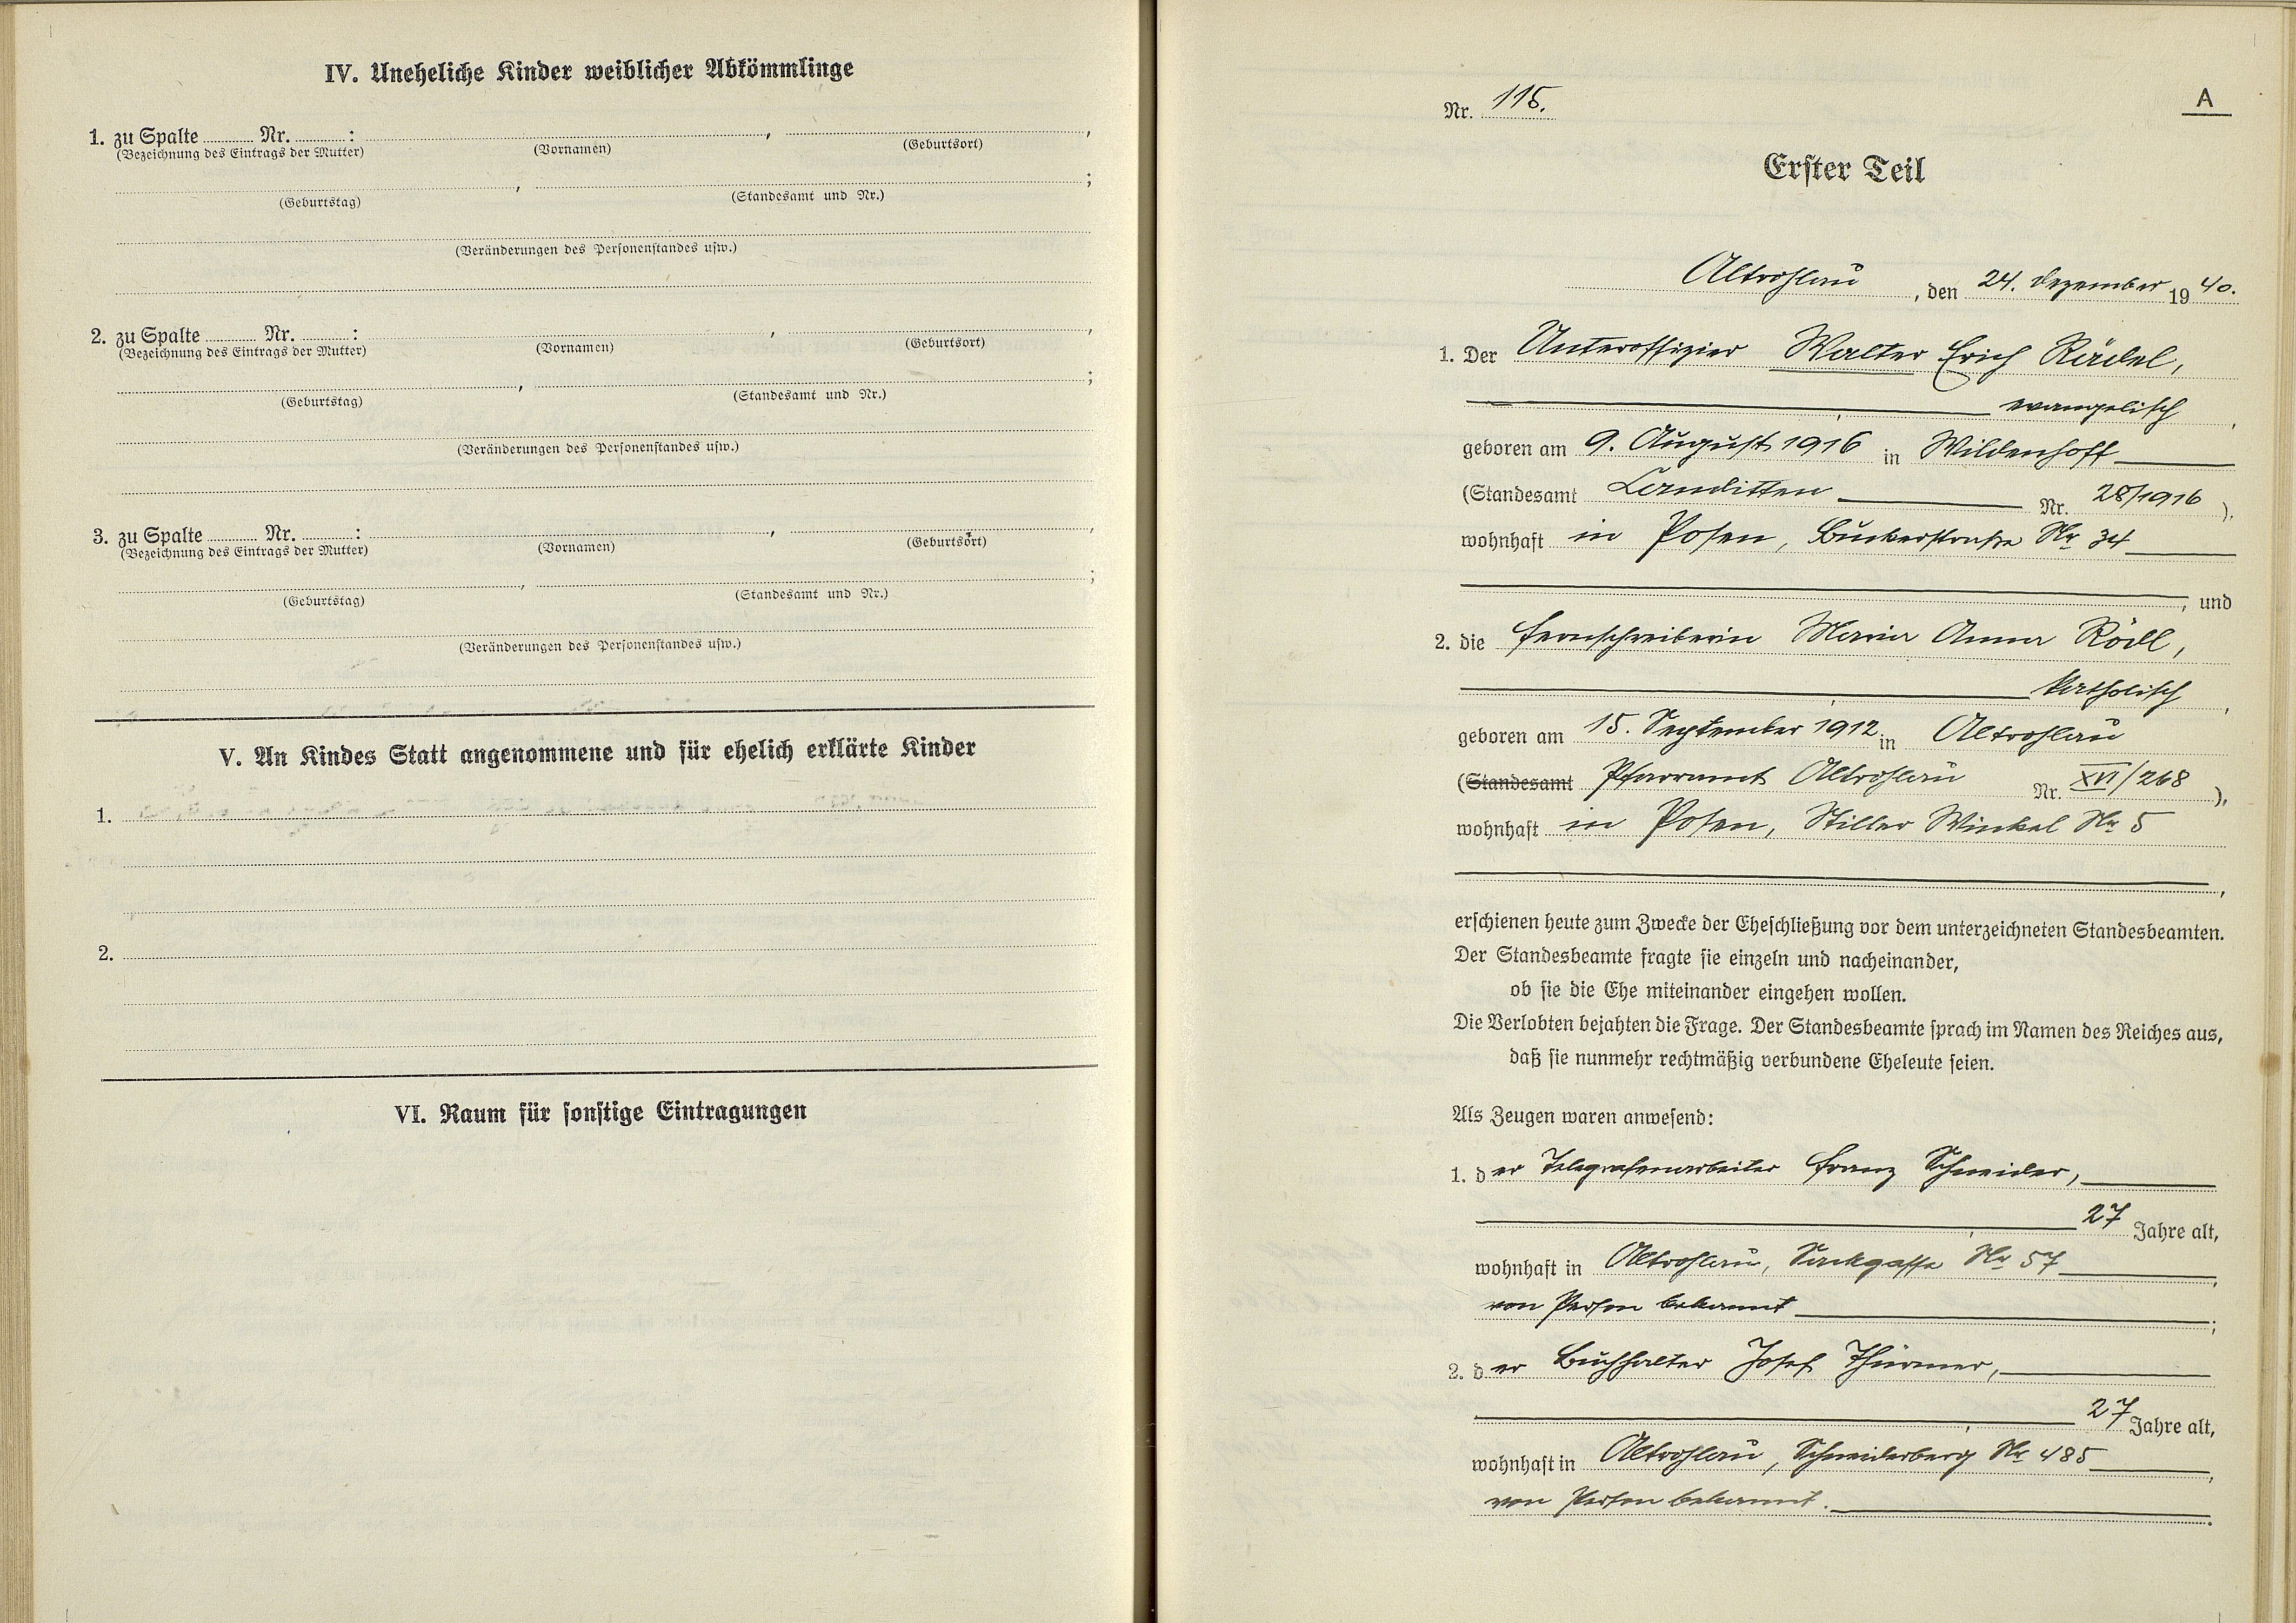 IV. Uneheliche Kinder weiblicher Abkömmlinge
1. zu Spalte ........ Nr. ........ :
(Bezeichnung des Eintrags der Mutter) (Vornamen) (Geburtsort)
(Geburtstag) (Standesamt und Nr.)
(Veränderungen des Personenstandes usw.)
2. zu Spalte ........ Nr. ........ :
(Bezeichnung des Eintrags der Mutter) (Vornamen) (Geburtsort)
(Geburtstag) (Standesamt und Nr.)
(Veränderungen des Personenstandes usw.)
3. zu Spalte ........ Nr. ........ :
(Bezeichnung des Eintrags der Mutter) (Vornamen) (Geburtsort)
(Geburtstag) (Standesamt und Nr.)
(Veränderungen des Personenstandes usw.)
V. An Kindes Statt angenommene und für ehelich erklärte Kinder
1.
2.
VI. Raum für sonstige Eintragungen
A
Nr. 115.
Erster Teil
Altrohlau, den 24. Dezember 1940.
1. Der Unteroffizier Walter Erich Rädel,
evangelisch,
geboren am 9. August 1916 in Wildenhoff
(Standesamt Landitten Nr. 28/1916),
wohnhaft in Posen, Bukerstraße Nr 34
, und
2. die Fernschreiberin Maria Anna Rödl,
katholisch,
geboren am 15. September 1912 in Altrohlau
(Standesamt Pfarramt Altrohlau Nr. XVI/268),
wohnhaft in Posen, Stiller Winkel Nr 5
,
erschienen heute zum Zwecke der Eheschließung vor dem unterzeichneten Standesbeamten.
Der Standesbeamte fragte sie einzeln und nacheinander,
ob sie die Ehe miteinander eingehen wollen.
Die Verlobten bejahten die Frage. Der Standesbeamte sprach im Namen des Reiches aus,
daß sie nunmehr rechtmäßig verbundene Eheleute seien.
Als Zeugen waren anwesend:
1. der Telegrafenarbeiter Franz Schneider,
27 Jahre alt,
wohnhaft in Altrohlau, Sackgasse Nr 57,
von Person bekannt;
2. der Buchhalter Josef Thürmer,
27 Jahre alt,
wohnhaft in Altrohlau, Schneiderberg Nr 485,
von Person bekannt.